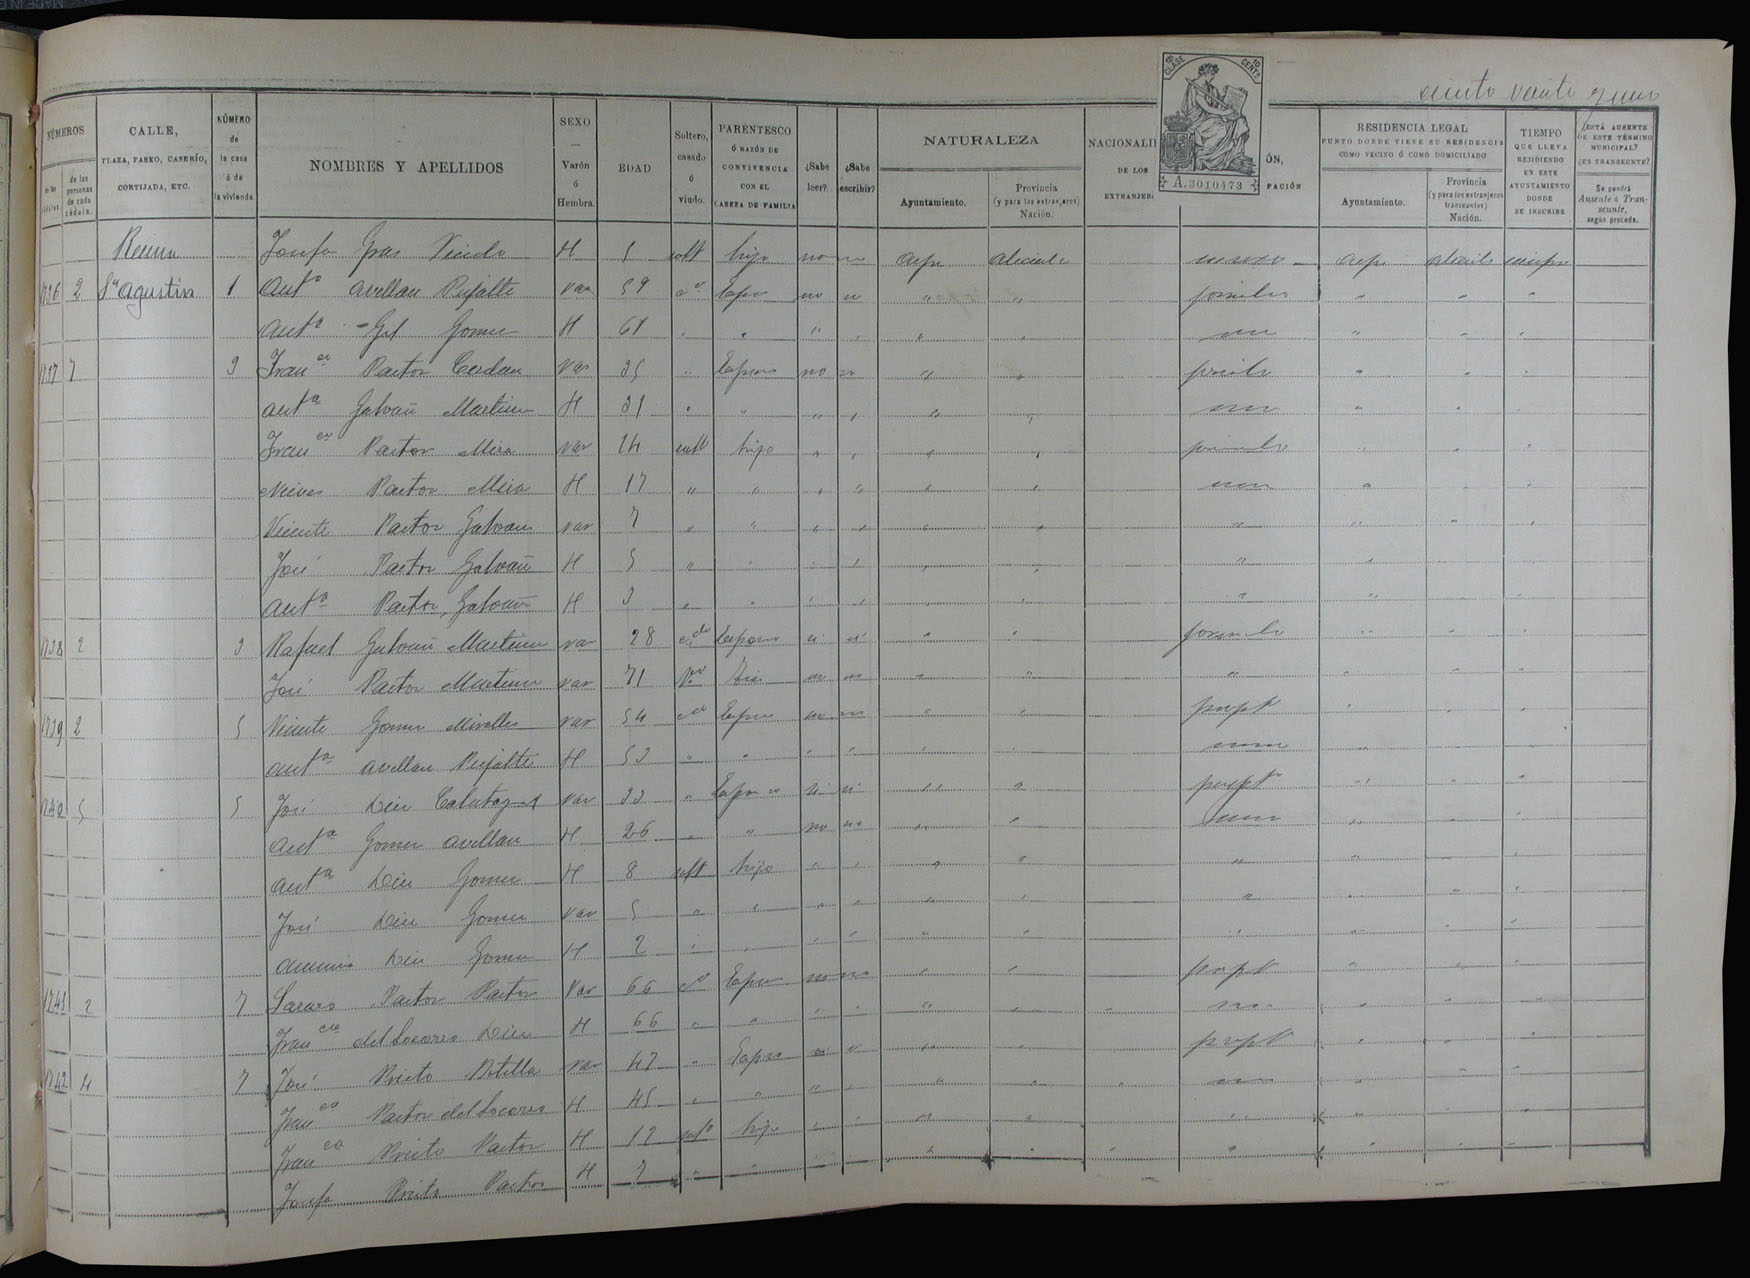 ciento veinte y uno
NÚMEROS
de las cédulas.
de las personas de cada cédula.
CALLE,
PLAZA, PASEO, CASERÍO,
CORTIJADA, ETC.
NÚMERO
de
la casa
ó de
la vivienda.
NOMBRES Y APELLIDOS
SEXO
—
Varón
ó
Hembra.
EDAD
Soltero,
casado
ó
viudo.
PARENTESCO
Ó RAZÓN DE
CONVIVENCIA
CON EL
CABEZA DE FAMILIA
¿Sabe
leer?
¿Sabe
escribir?
NATURALEZA
Ayuntamiento.
Provincia
(y para los extranjeros)
Nación.
NACIONALI
DE LOS
EXTRANJER
12ª CLASE
10 CENTS
A.3010473
ÓN,
PACIÓN
RESIDENCIA LEGAL
PUNTO DONDE TIENE SU RESIDENCIA
COMO VECINO Ó COMO DOMICILIADO
Ayuntamiento.
Provincia
(y para los extranjeros
transeuntes)
Nación.
TIEMPO
QUE LLEVA
RESIDIENDO
EN ESTE
AYUNTAMIENTO
DONDE
SE INSCRIBE
¿ESTÁ AUSENTE
DE ESTE TÉRMINO
MUNICIPAL?
¿ES TRANSEUNTE?
Se pondrá
Ausente ó Tran-
seunte,
según proceda.
Josefa Gras H 5 solt hijo no no Aspe Alicante Aspe Alicante siempre
1736 2 Sn Agustin 1 Antº Avellan Pujalte var 59 no
Antª Gil Gomez H 61 " "
1737 7 3 Franco Pastor Cerdan var 35 " Esposos no no " "
Antª Galvañ Martinez H 31 " " " " "
Franco Pastor Mira var 14 solt hijo " " "
Nieves Pastor Mira H 17 " " " " " "
Vicente Pastor Galvañ var 7 " " " " " "
José Pastor Galvañ H 5 " " " " "
Antª Pastor Galvañ H 3 " " " " "
1738 2 3 Rafael Galvañ Martinez var 28 cdo Esposo si si " "
José Pastor Martinez var 71 Vdo tio no no " "
1739 2 5 Vicente Gomez Miralles var 54 Espos no no " " propt
Antª Avellan Pujalte H 53 " " " " "
1740 5 5 José Dies Calatayud var 33 " Espos si si " " propt
Antª Gomez Avellan H 26 " " no no " "
Antª Dies Gomez H 8 solt hijo " " " "
José Dies Gomez var 5 " " " " " "
Dies Gomez H 2 " " " " " "
1741 2 7 Pastor Pastor var 66 Espos no no " " propt
Franca del Socorro Dies H 66 " " " " "
1742 4 7 José Prieto Botella var 47 " Espos si si " " propt
Franca Pastor del Socorro H 45 " " " " " "
Franca Prieto Pastor H 12 solt hijo " " " "
Josefa Prieto Pastor H 7 " " " "